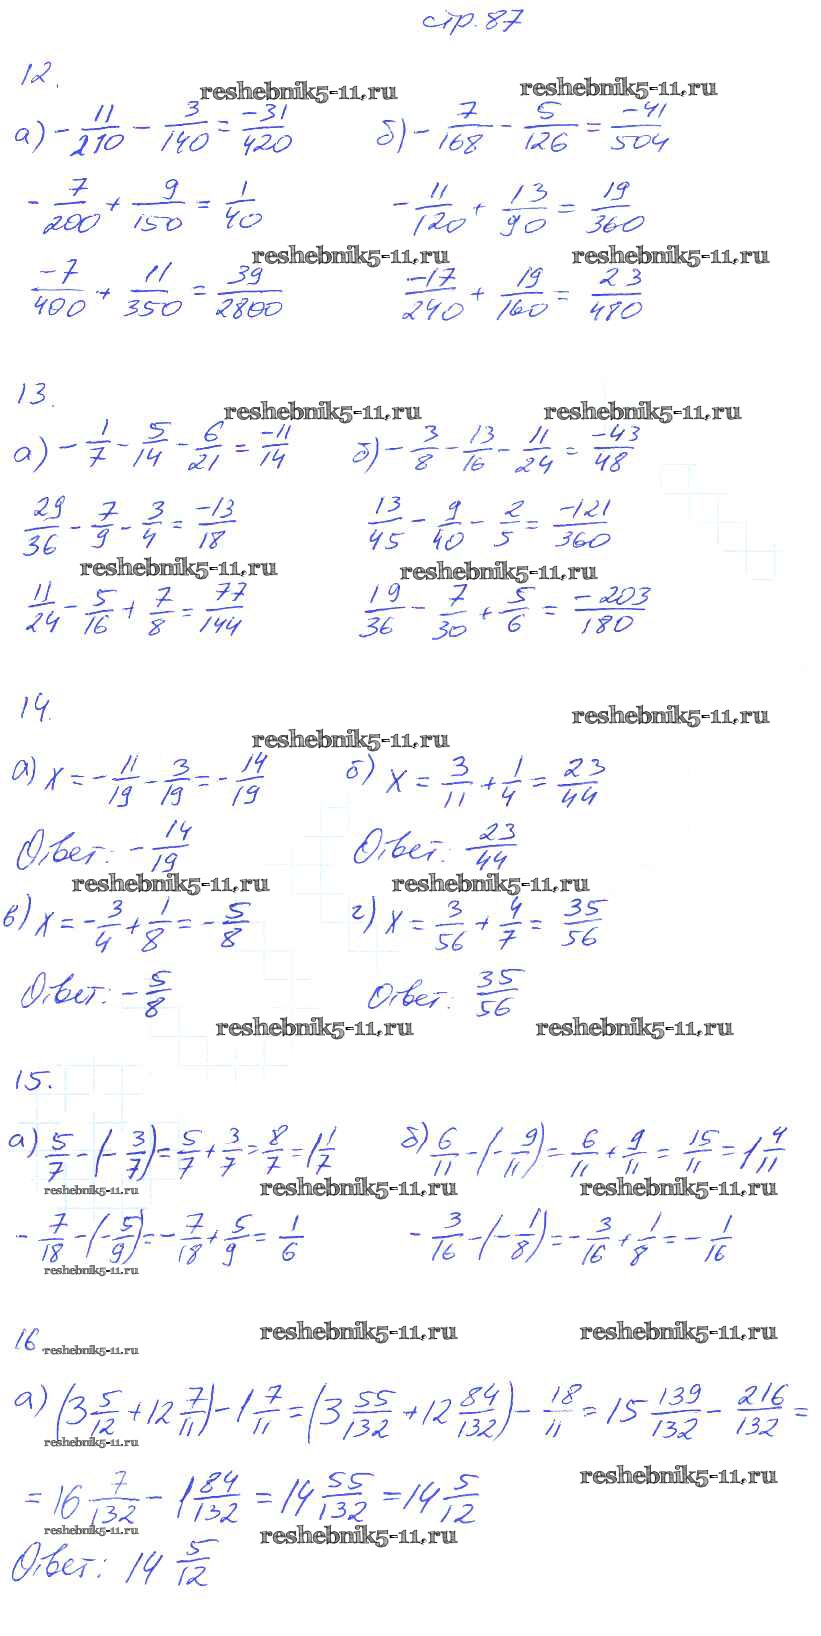 стр. 87
12.
reshebnik5-11.ru reshebnik5-11.ru
а) -11/210 - 3/140 = -31/420 б) -7/168 - 5/126 = -41/504
-7/200 + 9/150 = 1/40 -11/120 + 13/90 = 19/360
reshebnik5-11.ru reshebnik5-11.ru
-7/400 + 11/350 = 39/2800 -17/240 + 19/160 = 23/480
13.
reshebnik5-11.ru reshebnik5-11.ru
а) -1/7 - 5/14 - 6/21 = -11/14 б) -3/8 - 13/16 - 11/24 = -43/48
29/36 - 7/9 - 3/4 = -13/18 13/45 - 9/40 - 2/5 = -121/360
reshebnik5-11.ru reshebnik5-11.ru
11/24 - 5/16 + 7/8 = 77/144 19/36 - 7/30 + 5/6 = -203/180
14.
reshebnik5-11.ru reshebnik5-11.ru
а) x = -11/19 - 3/19 = -14/19 б) x = 3/11 + 1/4 = 23/44
Ответ: -14/19 Ответ: 23/44
reshebnik5-11.ru reshebnik5-11.ru
в) x = -3/4 + 1/8 = -5/8 г) x = 3/56 + 4/7 = 35/56
Ответ: -5/8 Ответ: 35/56
reshebnik5-11.ru reshebnik5-11.ru
15.
а) 5/7 - (-3/7) = 5/7 + 3/7 = 8/7 = 1 1/7 б) 6/11 - (-9/11) = 6/11 + 9/11 = 15/11 = 1 4/11
reshebnik5-11.ru reshebnik5-11.ru reshebnik5-11.ru
-7/18 - (-5/9) = -7/18 + 5/9 = 1/6 -3/16 - (-1/8) = -3/16 + 1/8 = -1/16
reshebnik5-11.ru
16 reshebnik5-11.ru reshebnik5-11.ru reshebnik5-11.ru
а) (3 5/12 + 12 7/11) - 1 7/11 = (3 55/132 + 12 84/132) - 18/11 = 15 139/132 - 216/132 =
reshebnik5-11.ru
= 16 7/132 - 1 84/132 = 14 55/132 = 14 5/12
reshebnik5-11.ru
reshebnik5-11.ru reshebnik5-11.ru
Ответ: 14 5/12